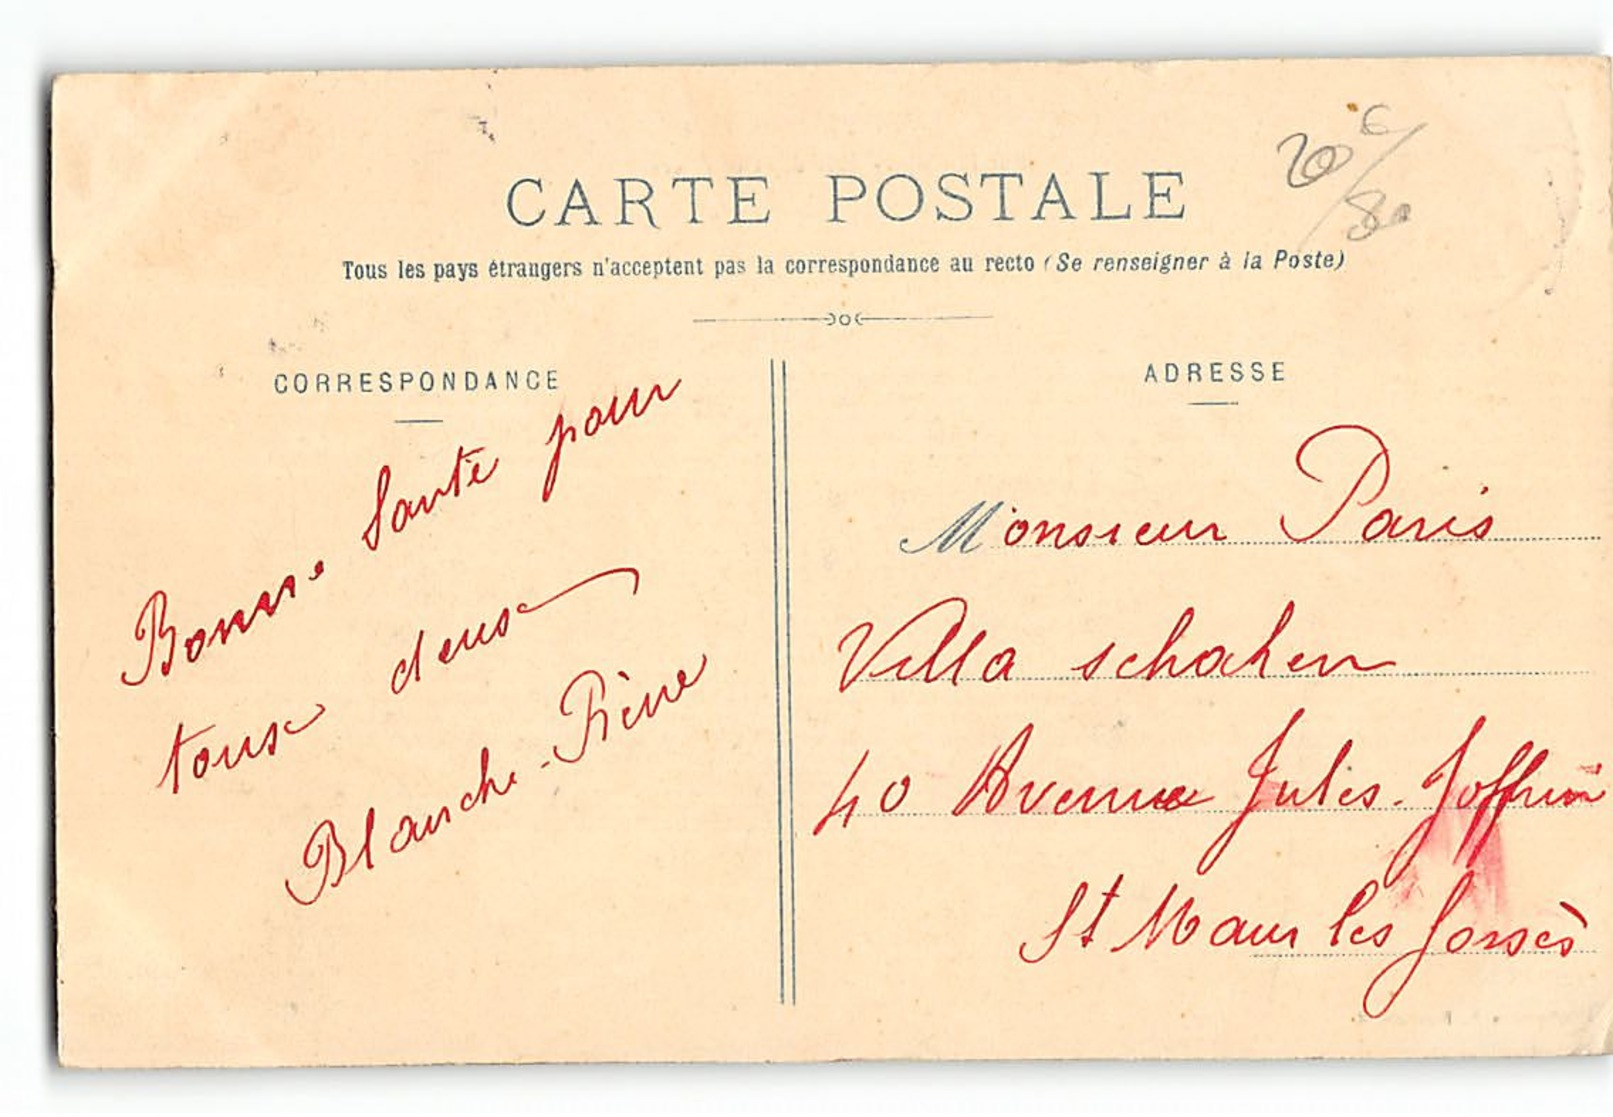 CARTE POSTALE
20€/80
Tous les pays étrangers n'acceptent pas la correspondance au recto (Se renseigner à la Poste)
CORRESPONDANCE
Bonne Santé pour
tous deux
Blanche-
ADRESSE
Monsieur Paris
Villa
40 Avenue Jules-Joffrin
St Maur les Fossès